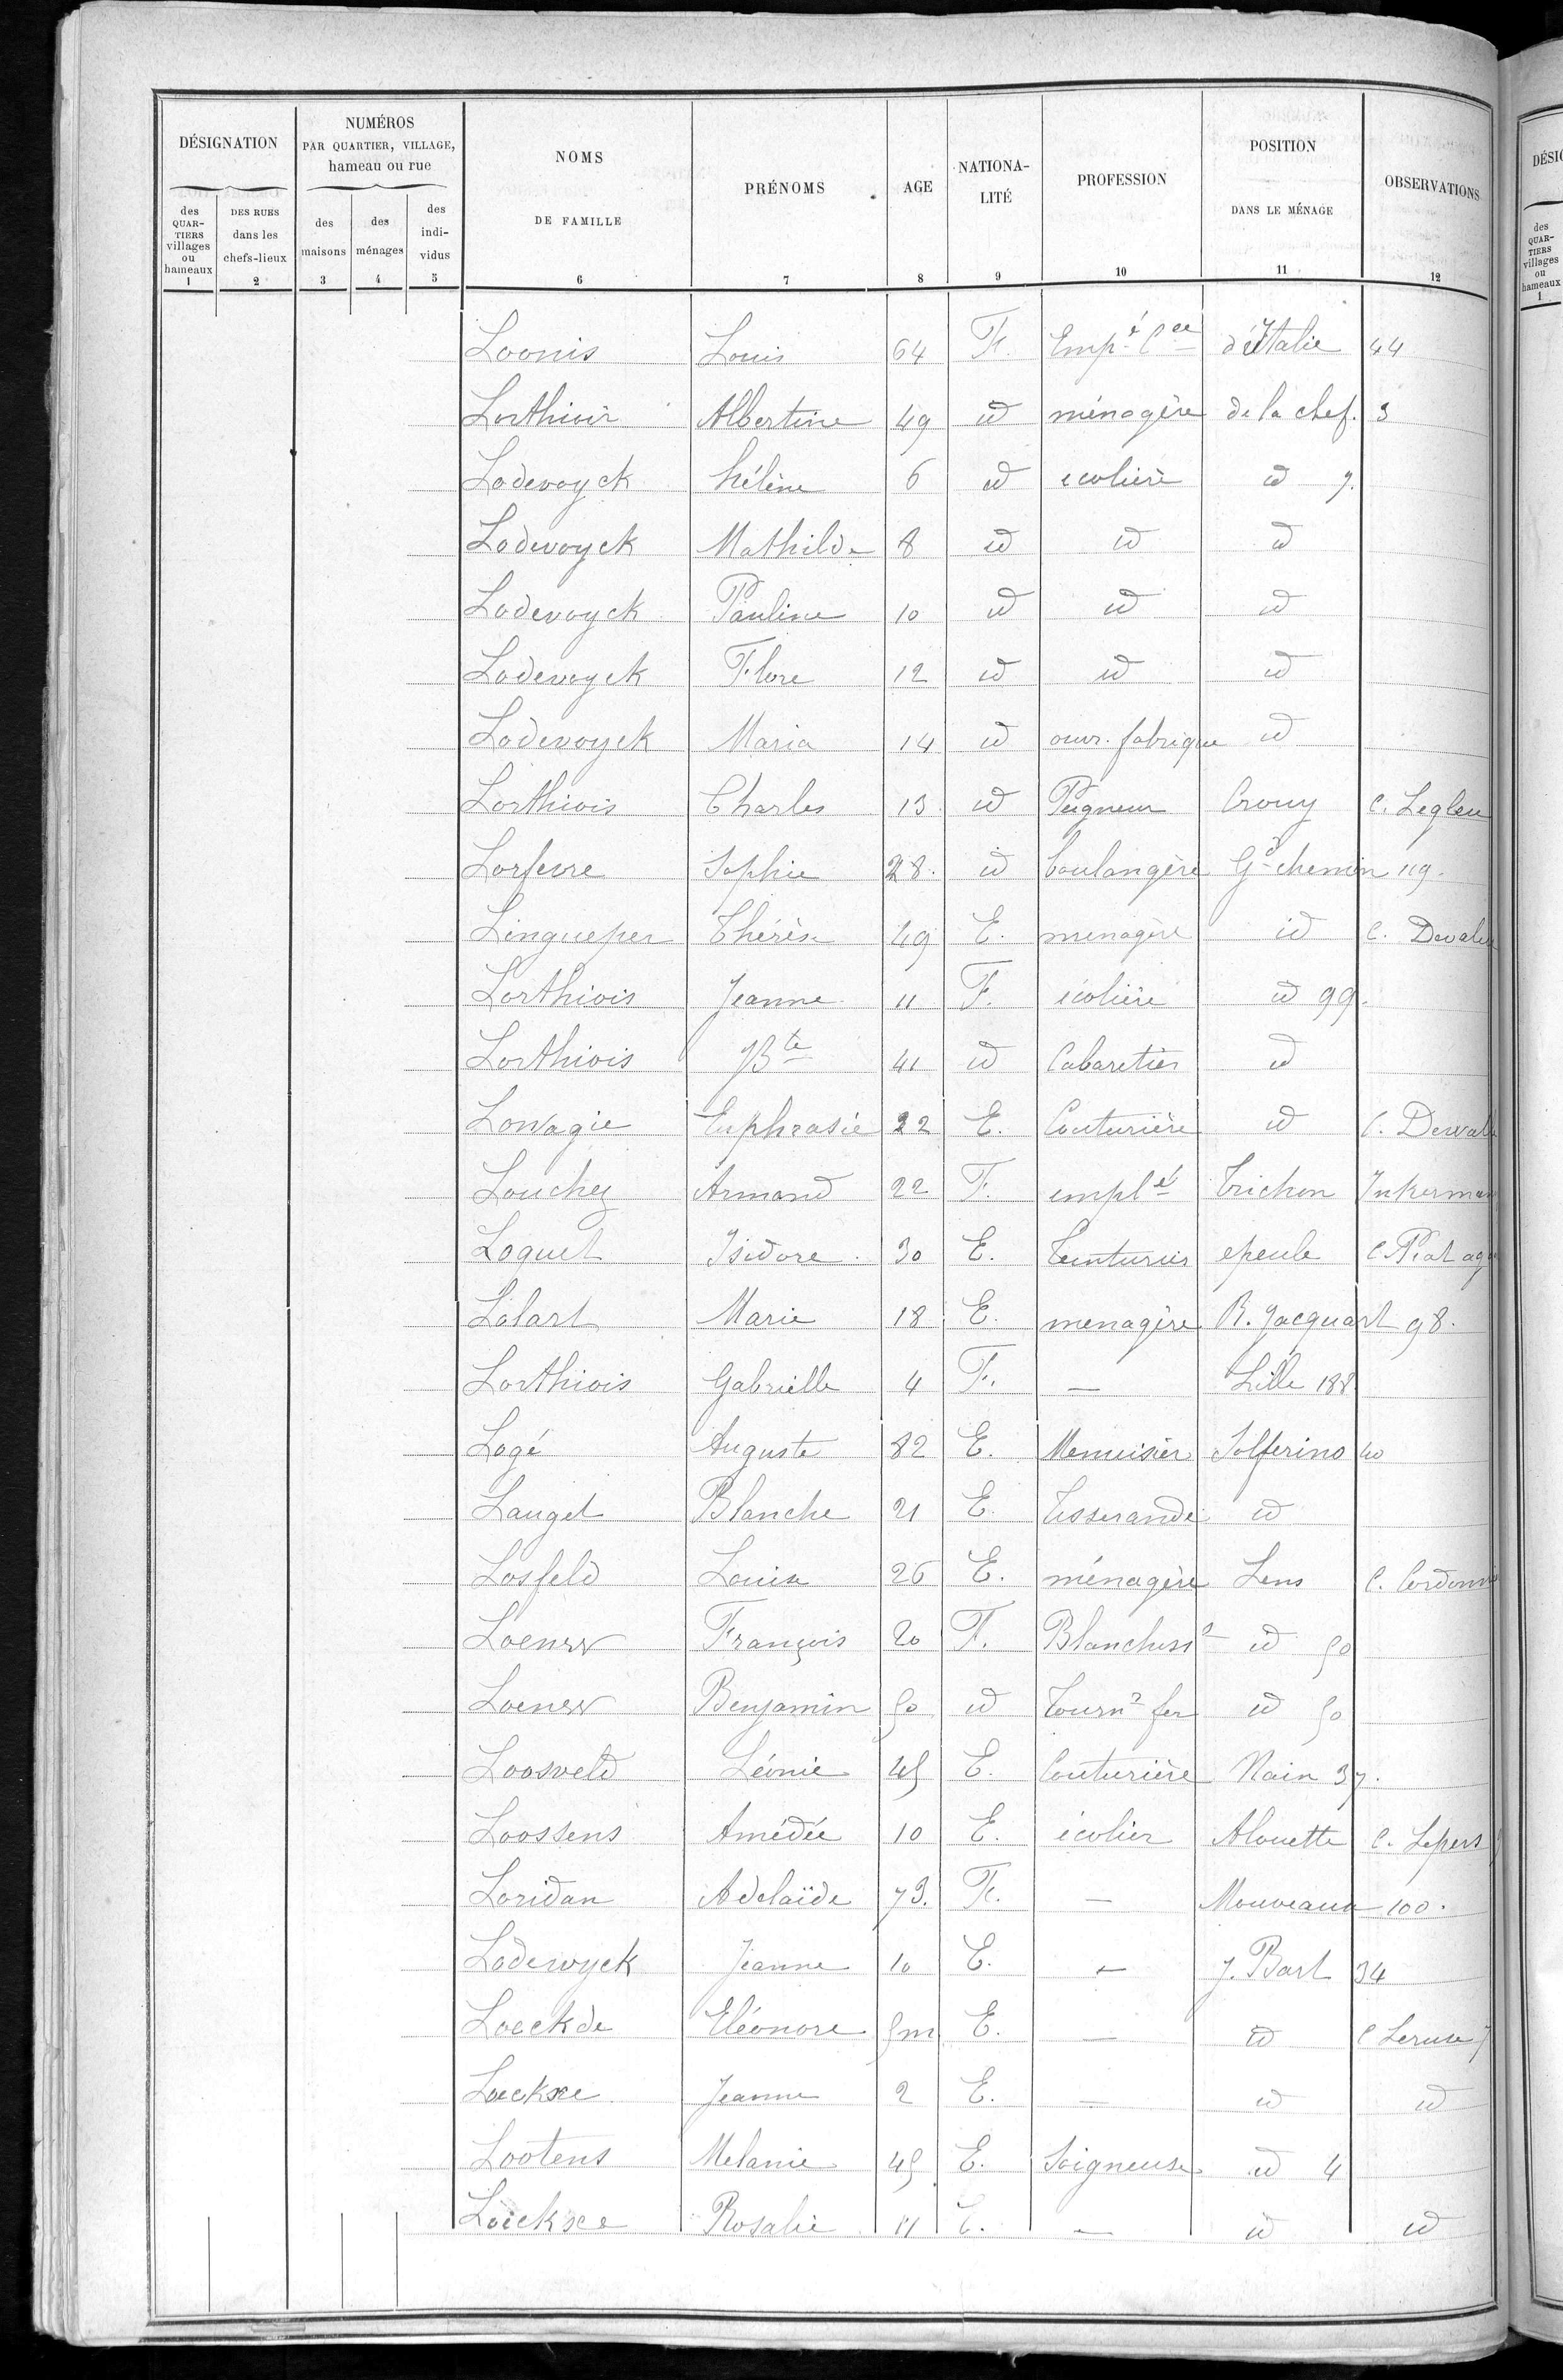 DÉSIGNATION
NUMÉROS PAR QUARTIER, VILLAGE, hameau ou rue
NOMS DE FAMILLE
PRÉNOMS
AGE
NATIONA-LITÉ
PROFESSION
POSITION DANS LE MÉNAGE
OBSERVATIONS
des QUAR-TIERS villages ou hameaux
DES RUES dans les chefs-lieux
des maisons
des ménages
des indi-vidus
1 2 3 4 5 6 7 8 9 10 11 12
Loonis Louis 64 Fr Empé Cce d'Italie 44
Lorthioir Albertine 49 id ménagère de la chef. 3
Lodevoyck Hélène 6 id ecolière id 7.
Lodevoyck Mathilde 8 id id id
Lodevoyck Pauline 10 id id id
Lodevoyck Flore 12 id id id
Lodevoyck Maria 14 id ouvr. fabrique id
Lorthiois Charles 13 id Peigneur Crouy C. Legleu
Lorfevre Sophie 28. id boulangère Gd chemin 119.
Lingueper Thérèse 49 E. menagère id C.
Lorthiois Jeanne 11 F. écolière id 99.
Lorthiois JBte 41 id Cabaretier id
Lowagie Euphrasie 22 E. Couturière id C.
Louchez Armand 22 F. emplé Trichon Inkerman
Loquet Isidore 30 E. Teinturier epeule C. Piat
Lolart Marie 18 E. menagère R. Jacquart 98.
Lorthiois Gabrielle 4 F. — Lille 188
Logé Auguste 82 E. Menuisier Solferino 40
Lauget Blanche 21 E. Tisserande id
Losfeld Louise 26 E. ménagère Lens C.
François 20 F. id 50
Benjamin 50 id Tournr fer id 50
Loosveld Léonie 45 E. Couturière Nain 37.
Loossens Amédée 10 E. écolier Alouette C. Lepers
Loridan Adelaïde 73. Fr. — Mouveaux 100.
Lodewyck Jeanne 10 E. — J. Bart 34
Loeckde Eléonore 5m E. — id C
Loeckxe Jeanne 2 E. — id id
Lootens Melanie 45 E. Soigneuse id 4
Loeckxe Rosalie 11 E. — id id
DÉSIG
des QUAR-TIERS villages ou hameaux
1